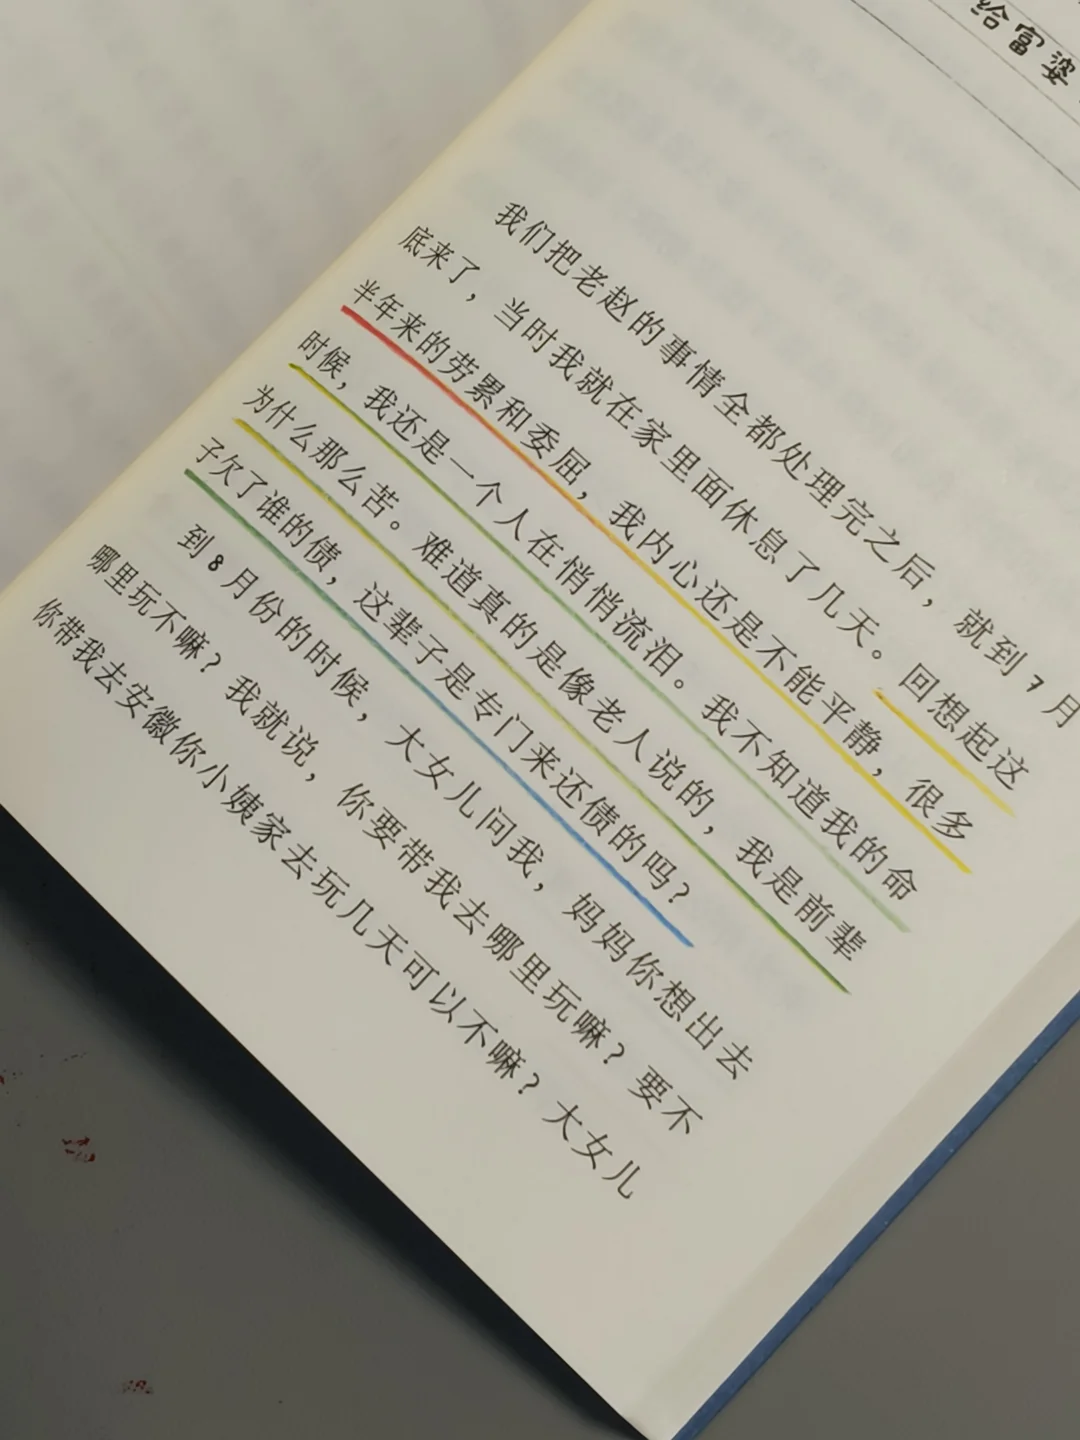 给富婆
我们把老赵的事情全都处理完之后，就到7月
底来了，当时我就在家里面休息了几天。回想起这
半年来的劳累和委屈，我内心还是不能平静，很多
时候，我还是一个人在悄悄流泪。我不知道我的命
为什么那么苦。难道真的是像老人说的，我是前辈
子欠了谁的债，这辈子是专门来还债的吗？
到8月份的时候，大女儿问我，妈妈你想出去
哪里玩不嘛？我就说，你要带我去哪里玩嘛？要不
你带我去安徽你小姨家去玩几天可以不嘛？大女儿